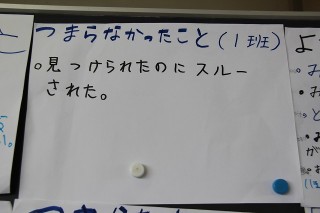 つまらなかったこと(1班)
。見つけられたのにスルー
された。